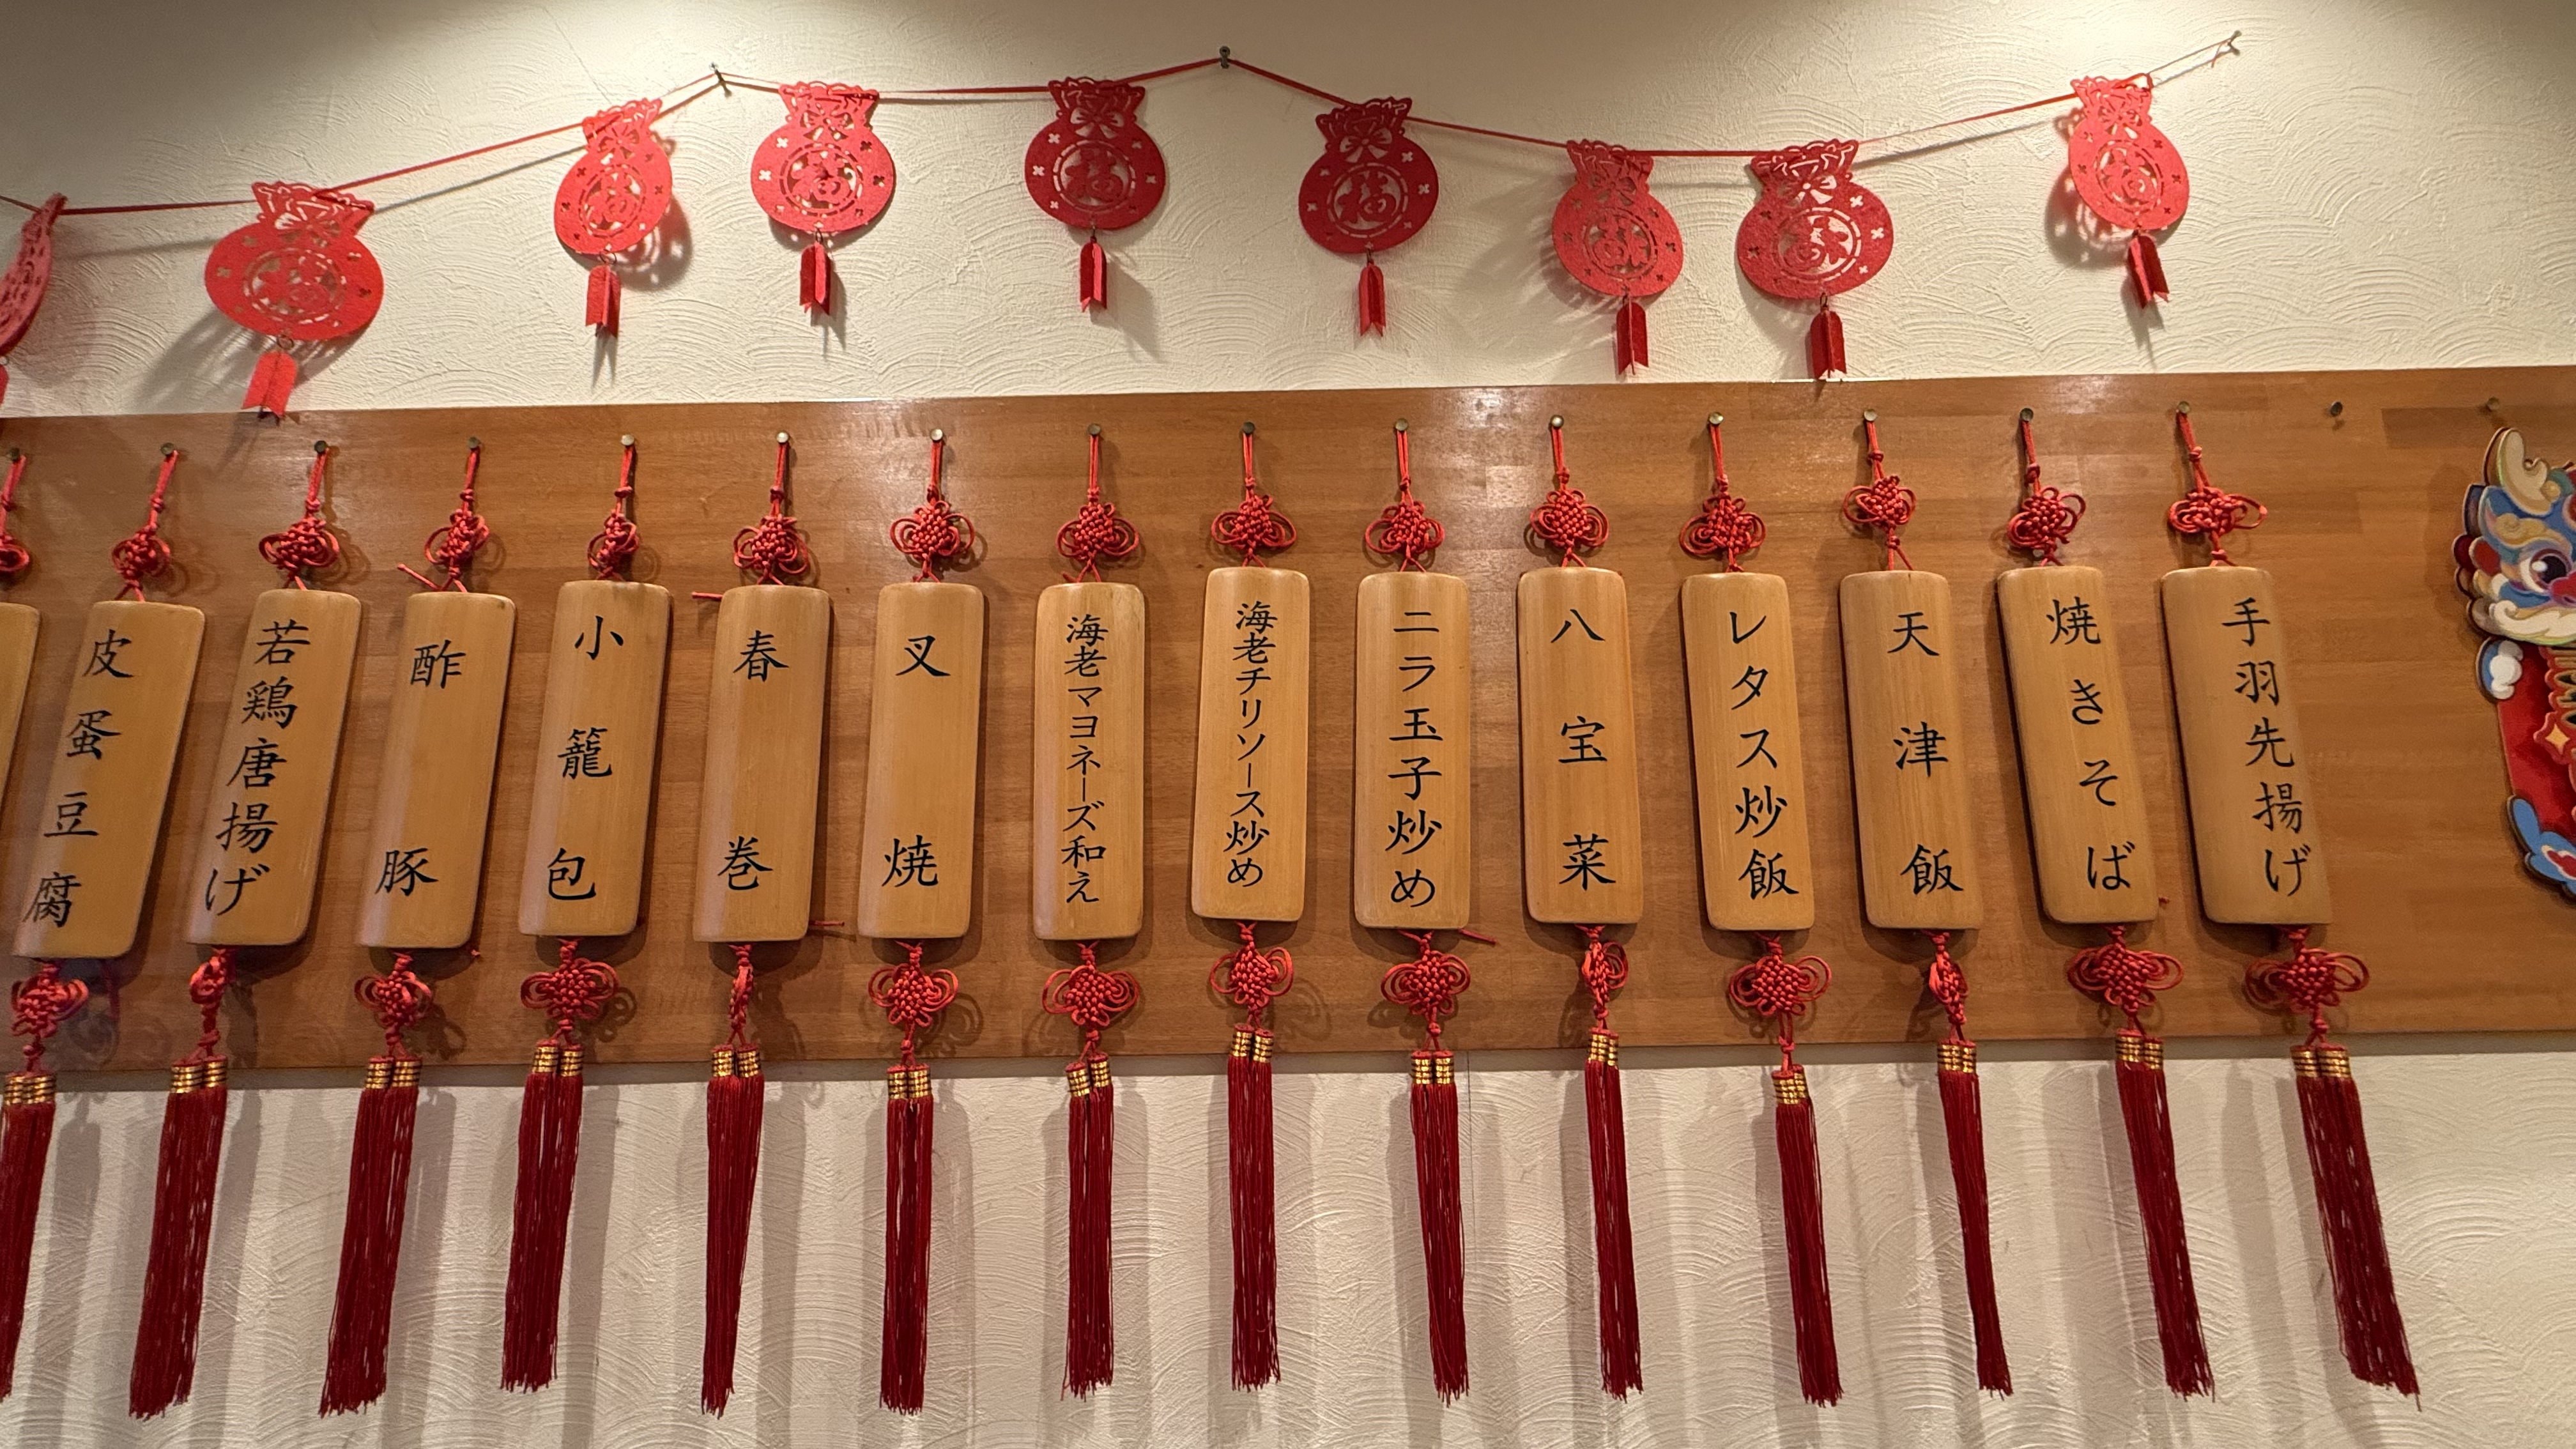 手羽先揚げ
焼きそば
天津飯
レタス炒飯
八宝菜
ニラ玉子炒め
海老チリソース炒め
海老マヨネーズ和え
叉焼
春巻
小籠包
酢豚
若鶏唐揚げ
皮蛋豆腐
福
福
福
福
福
福
福
福